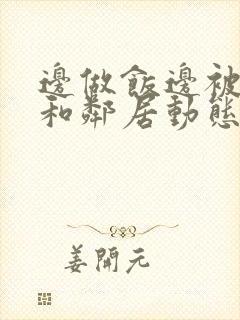 邊做飯邊被
和鄰居動態
姜開元